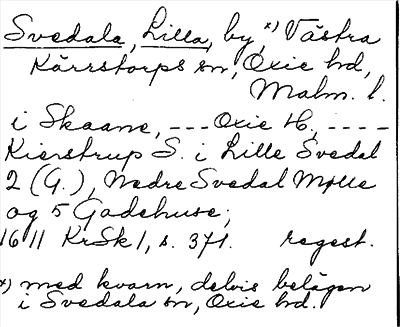 Svedala, Lilla, by x) Västra
Kärrstorps sn, Oxie hd,
Malm. l.
i Skaane, --- Oxie H., ----
Kierstrup S. i Lille Svedal
2 (G.), Nedre Svedal Mølle
og 5 Gadehuse,
1611 KrSk 1, s. 371. regest.
x) med kvarn, delvis belägen
i Svedala sn, Oxie hd.